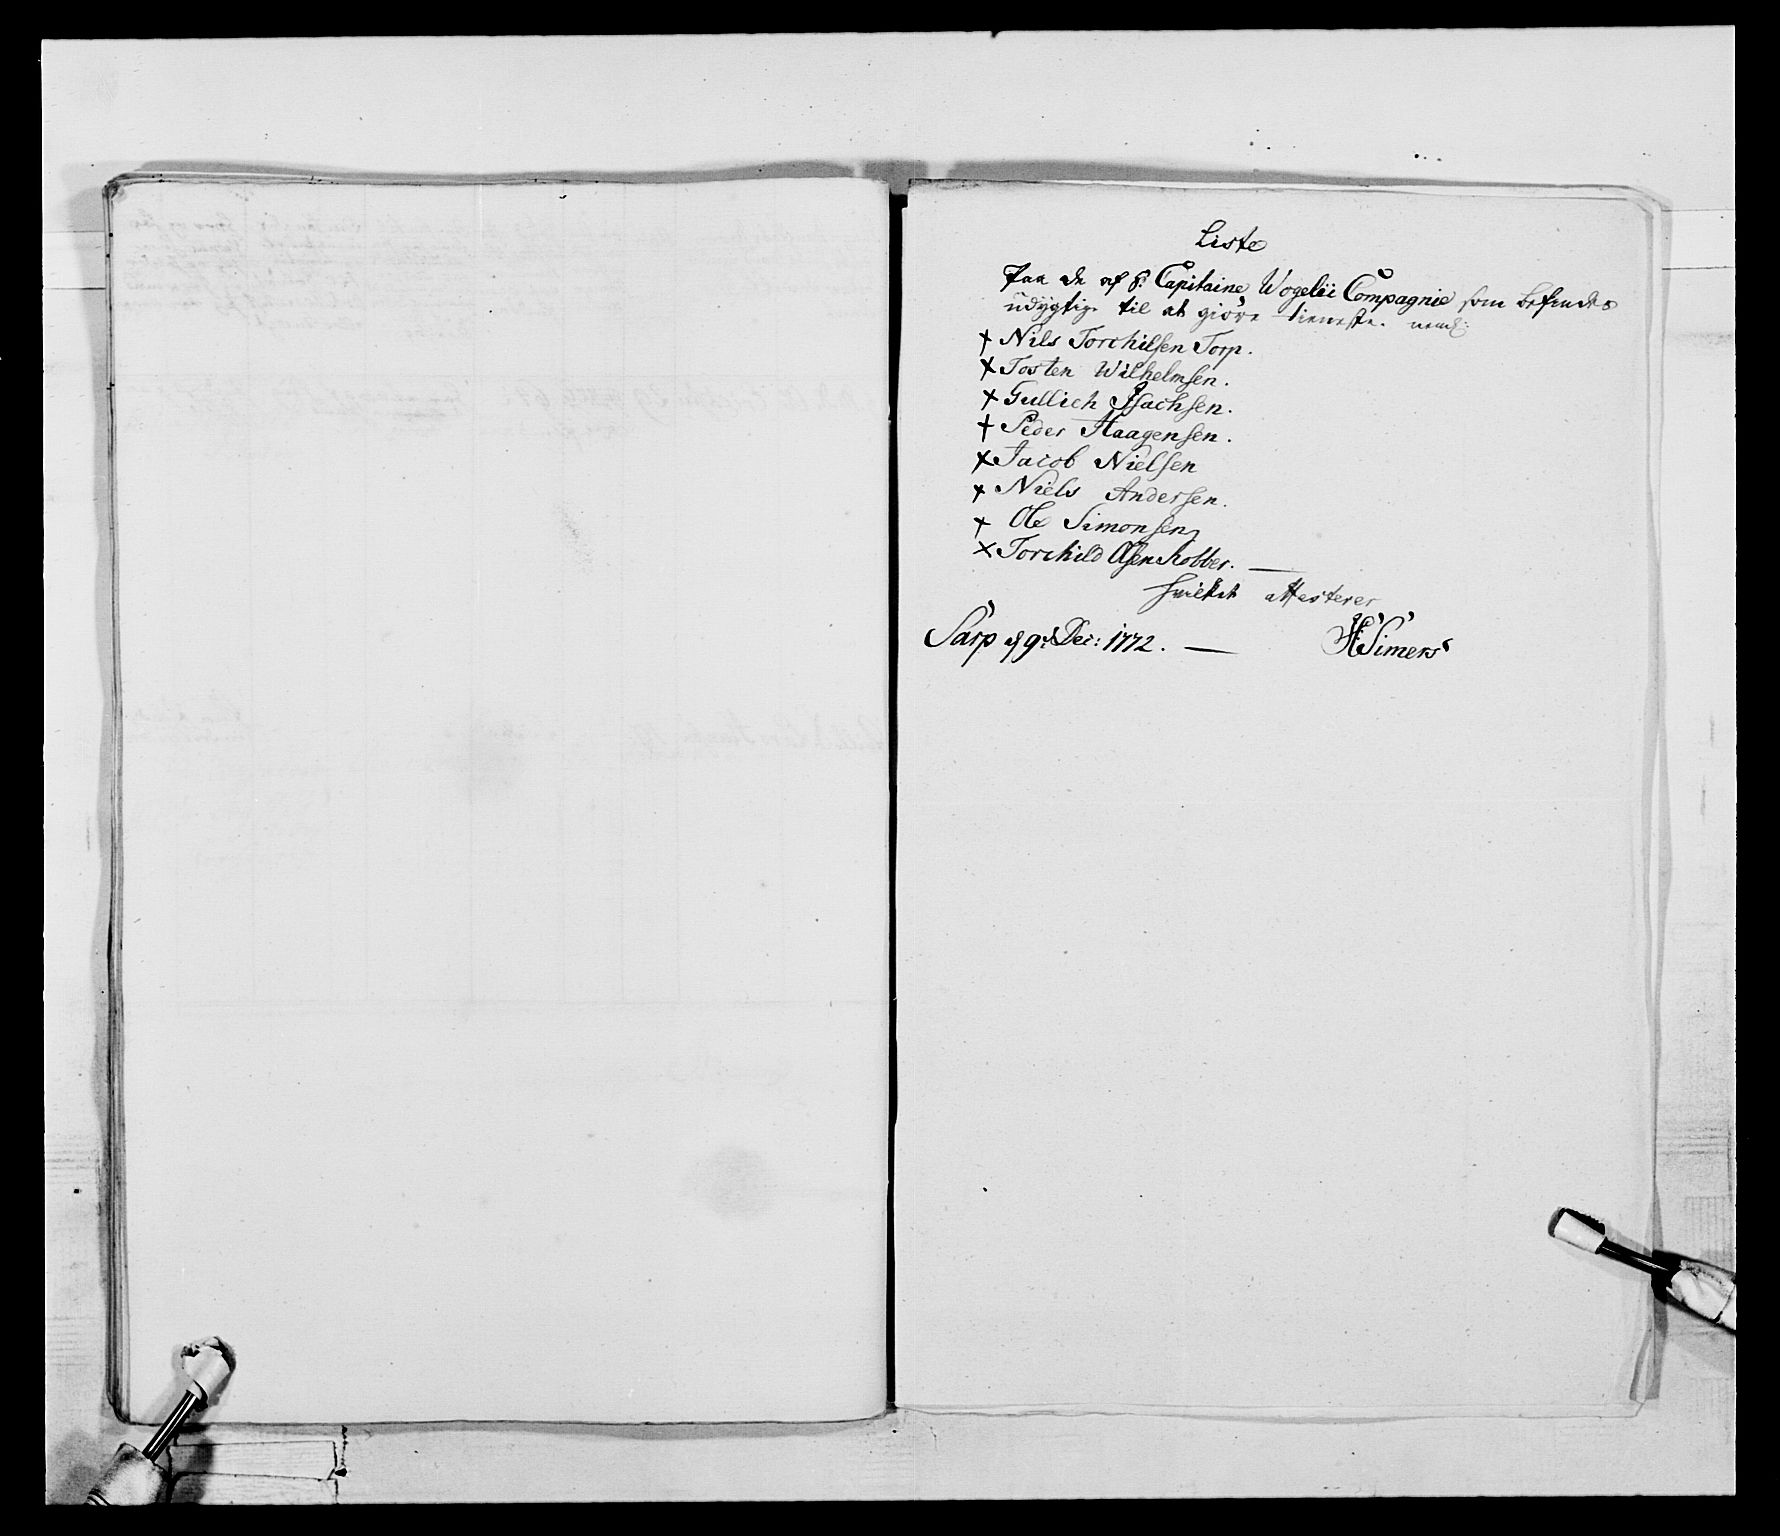 Liste
Paa de af Hr: Capitaine Wogelii Compagnie som befindes
udygtige til at giøre tieneste. neml:
† Nils Torchilsen Torp.
× Tosten Wilhelmsen.
× Gullich Isachsen.
† Peder Haagensen.
× Jacob Nielsen
× Niels Andersen.
† Ole Simonsen
× Torchild Olsen Kobber. —
hvilket attesterer
Sarp d 9d Dec: 1772. — H Simers